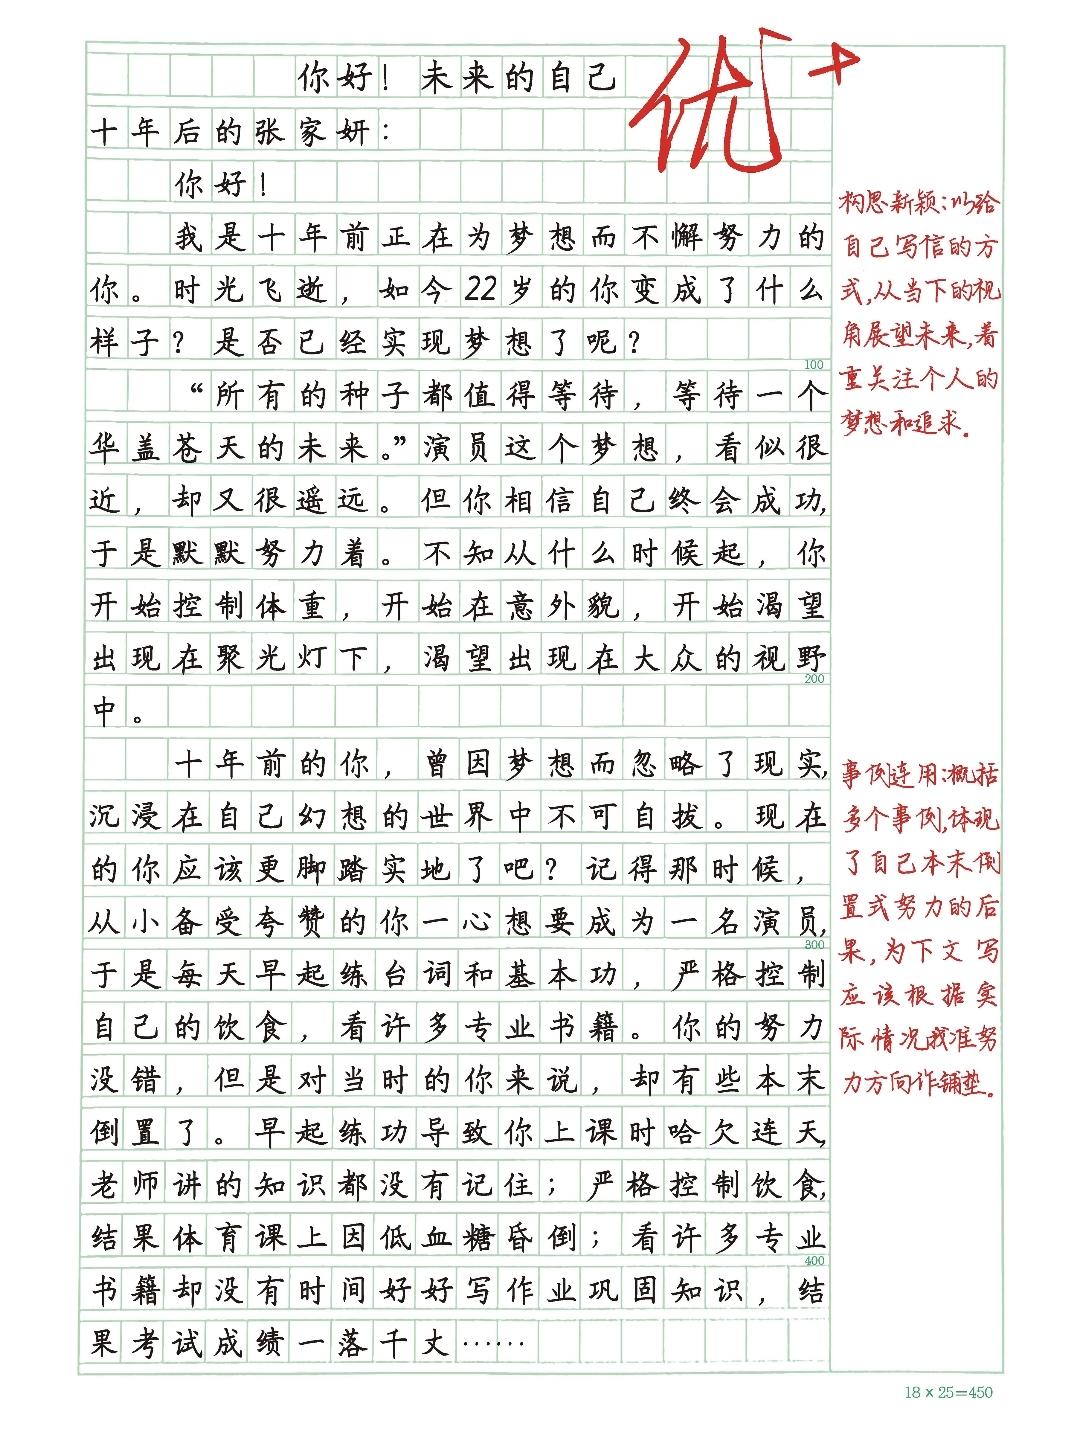 你好！未来的自己
优+
十年后的张家妍：
你好！
我是十年前正在为梦想而不懈努力的
你。时光飞逝，如今22岁的你变成了什么
样子？是否已经实现梦想了呢？
100
“所有的种子都值得等待，等待一个
华盖苍天的未来。”演员这个梦想，看似很
近，却又很遥远。但你相信自己终会成功，
于是默默努力着。不知从什么时候起，你
开始控制体重，开始在意外貌，开始渴望
出现在聚光灯下，渴望出现在大众的视野
200
中。
十年前的你，曾因梦想而忽略了现实，
沉浸在自己幻想的世界中不可自拔。现在
的你应该更脚踏实地了吧？记得那时候，
从小备受夸赞的你一心想要成为一名演员，
300
于是每天早起练台词和基本功，严格控制
自己的饮食，看许多专业书籍。你的努力
没错，但是对当时的你来说，却有些本末
倒置了。早起练功导致你上课时哈欠连天，
老师讲的知识都没有记住；严格控制饮食，
结果体育课上因低血糖昏倒；看许多专业
400
书籍却没有时间好好写作业巩固知识，结
果考试成绩一落千丈……
构思新颖：以给
自己写信的方
式，从当下的视
角展望未来，着
重关注个人的
梦想和追求。
事例连用：概括
多个事例，体现
了自己本末倒
置式努力的后
果，为下文写
应该根据实
际情况找准努
力方向作铺垫。
18×25=450